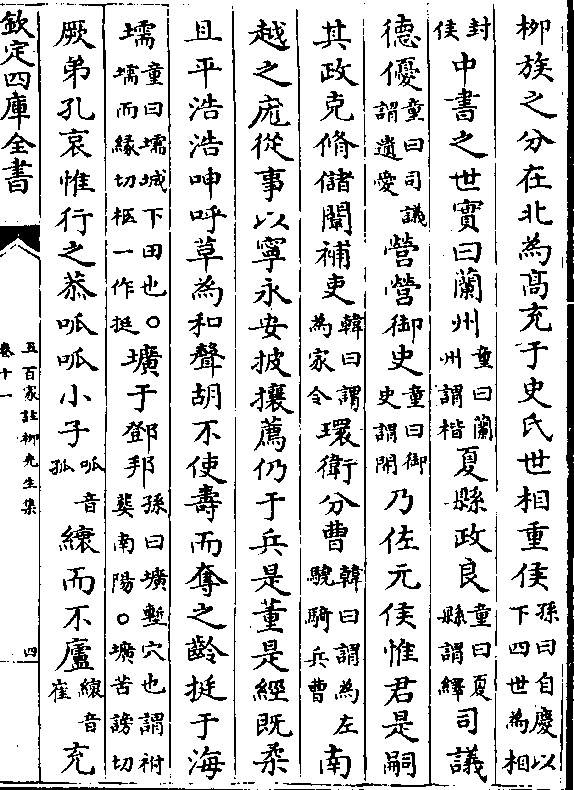 柳族之分在北為髙充于史氏世相重侯孫曰自慶以下四世為相
封侯中書之世實曰蘭州童曰蘭州謂楷夏縣政良童曰夏縣謂繹司議
德優童曰司議謂遺愛營營御史童曰御史謂開乃佐元侯惟君是嗣
其政克脩儲闈補吏韓曰謂為家令環衛分曹韓曰謂為左驍騎兵曹南
越之庬從事以寧永安披攘薦仍于兵是董是經既柔
且平浩浩呻呼草為和聲胡不使壽而奪之齡挺于海
壖童曰壖城下田也。壖而緣切柩一作挺壙于鄧邦孫曰壙塹穴也謂祔葬南陽。壙苦謗切
厥弟孔哀惟行之恭呱呱小子呱音孤縗而不廬縗音崔充
欽定四庫全書
五百家註柳先生集
卷十一
四